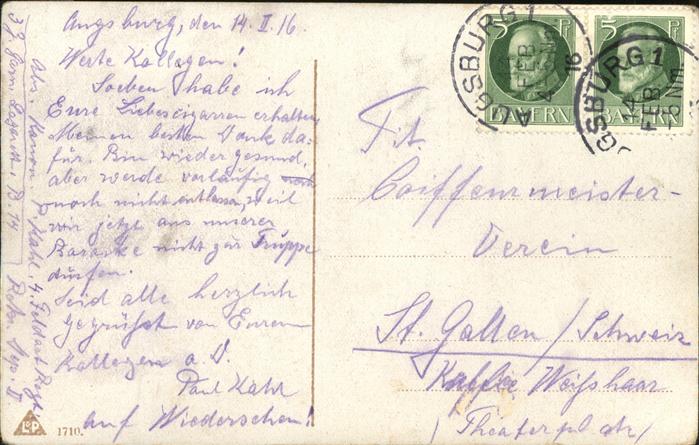 Augsburg, den 14. II. 16.
Werte Kollegen!
Soeben habe ich
Eure Liebescigarren erhalten,
Meinen besten Dank da-
für. Bin wieder gesund,
aber werde vorläufig
noch nicht entlassen, weil
wir jetzt aus unserer
Baracke nicht zur Truppe
dürfen.
Seid alle herzlich
gegrüßt von Eurem
Kollegen a. D.
Paul Kahl
auf Wiedersehen!
Abs. Kanon. P. Kahl, 4. Feldart. Regt.
Lazarett, B 14
1710.
AUGSBURG 1
14 FEB
16
5 Pf
BAYERN
5 Pf
BAYERN
AUGSBURG 1
FEB
Nm
Coiffeurmeister-
Verein
St. Gallen / Schweiz
Kaffee Weißhaar
(Theaterplatz)